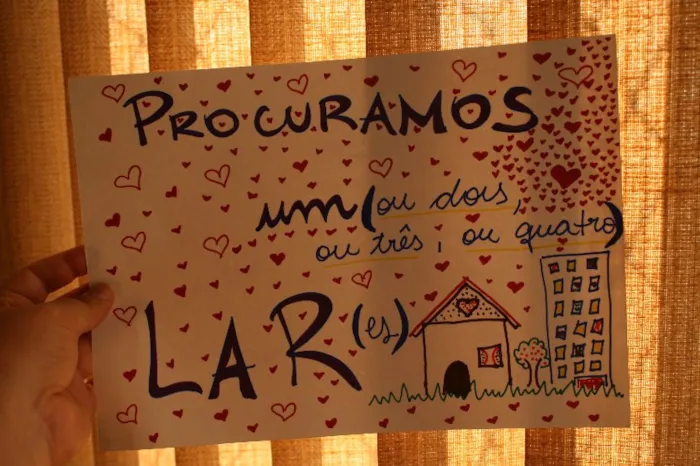 PROCURAMOS
um (ou dois,
ou três, ou quatro)
LAR (es)